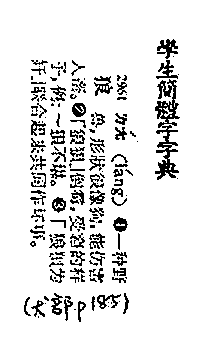 學生簡體字字典
2961 ㄌㄤˊ (láng) ❶一种野
狼 兽,形状很像狗,能伤害
人畜。❷「狼狈」,受窘的样
子,例:~狈不堪。❸「狼狈为
奸」联合起来共同作坏事。
(犬部p185)